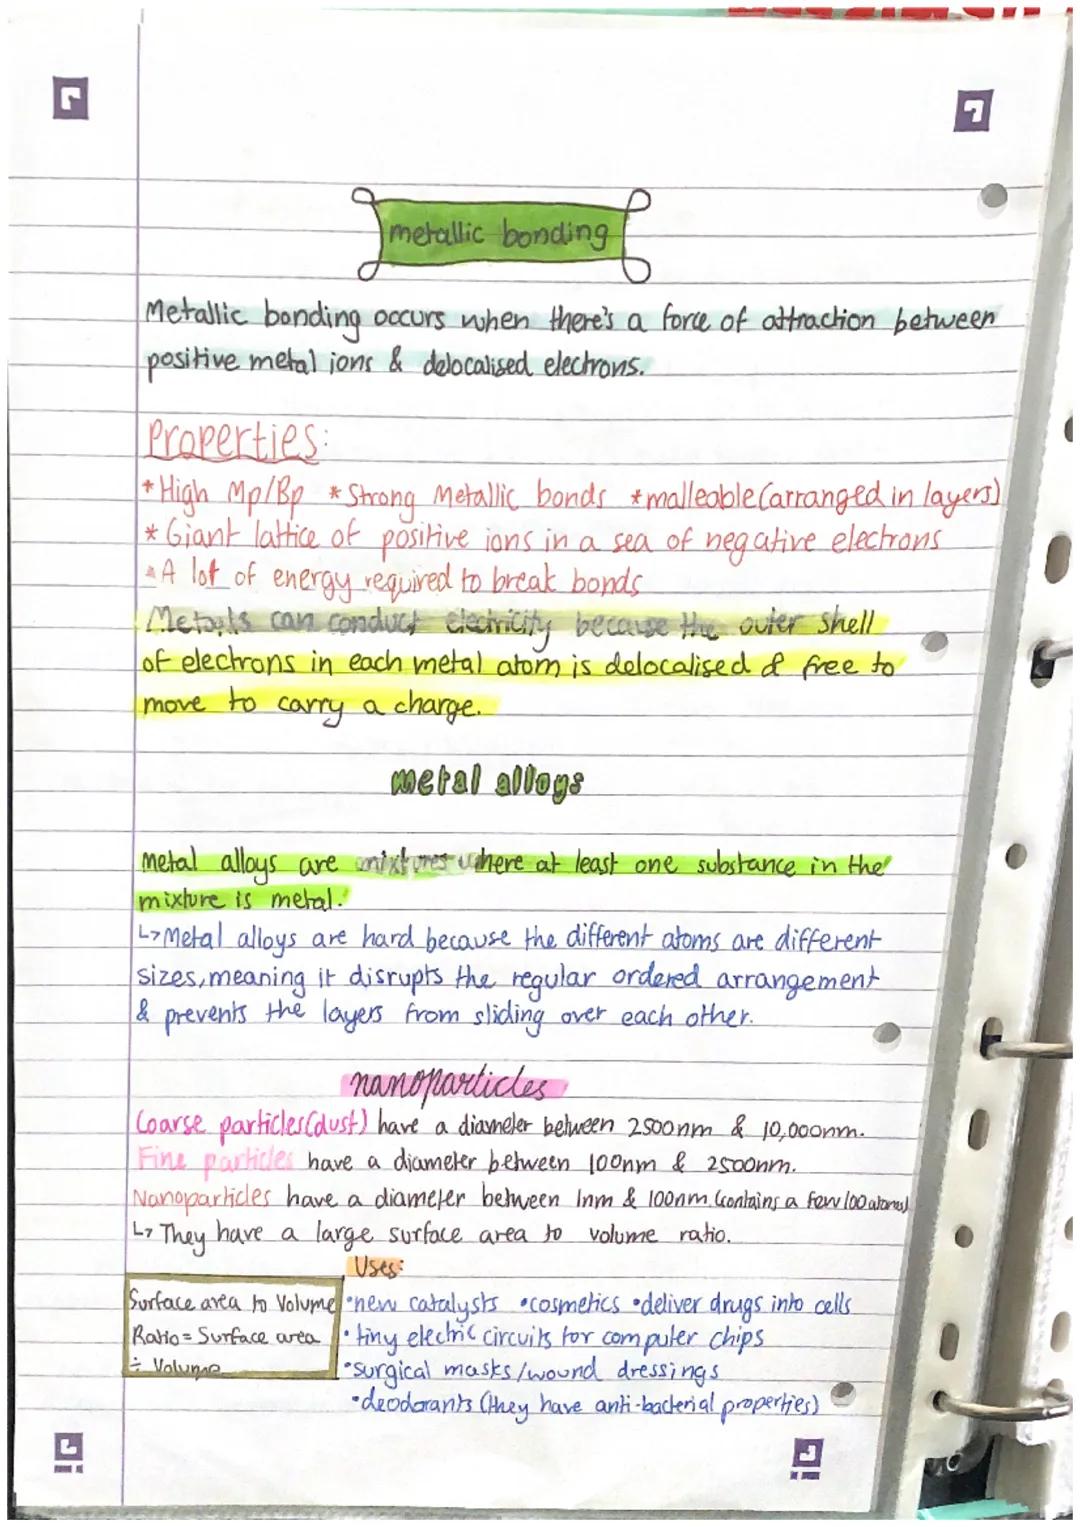 metallic bonding
Metallic bonding occurs when there's a force of attraction between
positive metal ions & delocalised electrons.
Properties:
* High Mp/Bp * Strong Metallic bonds * malleable (arranged in layers)
* Giant lattice of positive ions in a sea of negative electrons
* A lot of energy required to break bonds
Metals can conduct electricity because the outer shell
of electrons in each metal atom is delocalised & free to
move to carry a charge.
metal alloys
Metal alloys are mixtures where at least one substance in the
mixture is metal.
↳ Metal alloys are hard because the different atoms are different
sizes, meaning it disrupts the regular ordered arrangement
& prevents the layers from sliding over each other.
nanoparticles
Coarse particles (dust) have a diameter between 2500nm & 10,000nm.
Fine particles have a diameter between 100nm & 2500nm.
Nanoparticles have a diameter between 1nm & 100nm. (contains a few 100 atoms)
↳ They have a large surface area to volume ratio.
Uses:
Surface area to Volume
Ratio = Surface area
÷ Volume
• new catalysts • cosmetics • deliver drugs into cells
• tiny electric circuits for computer chips
• surgical masks/wound dressings
• deodorants (they have anti-bacterial properties)